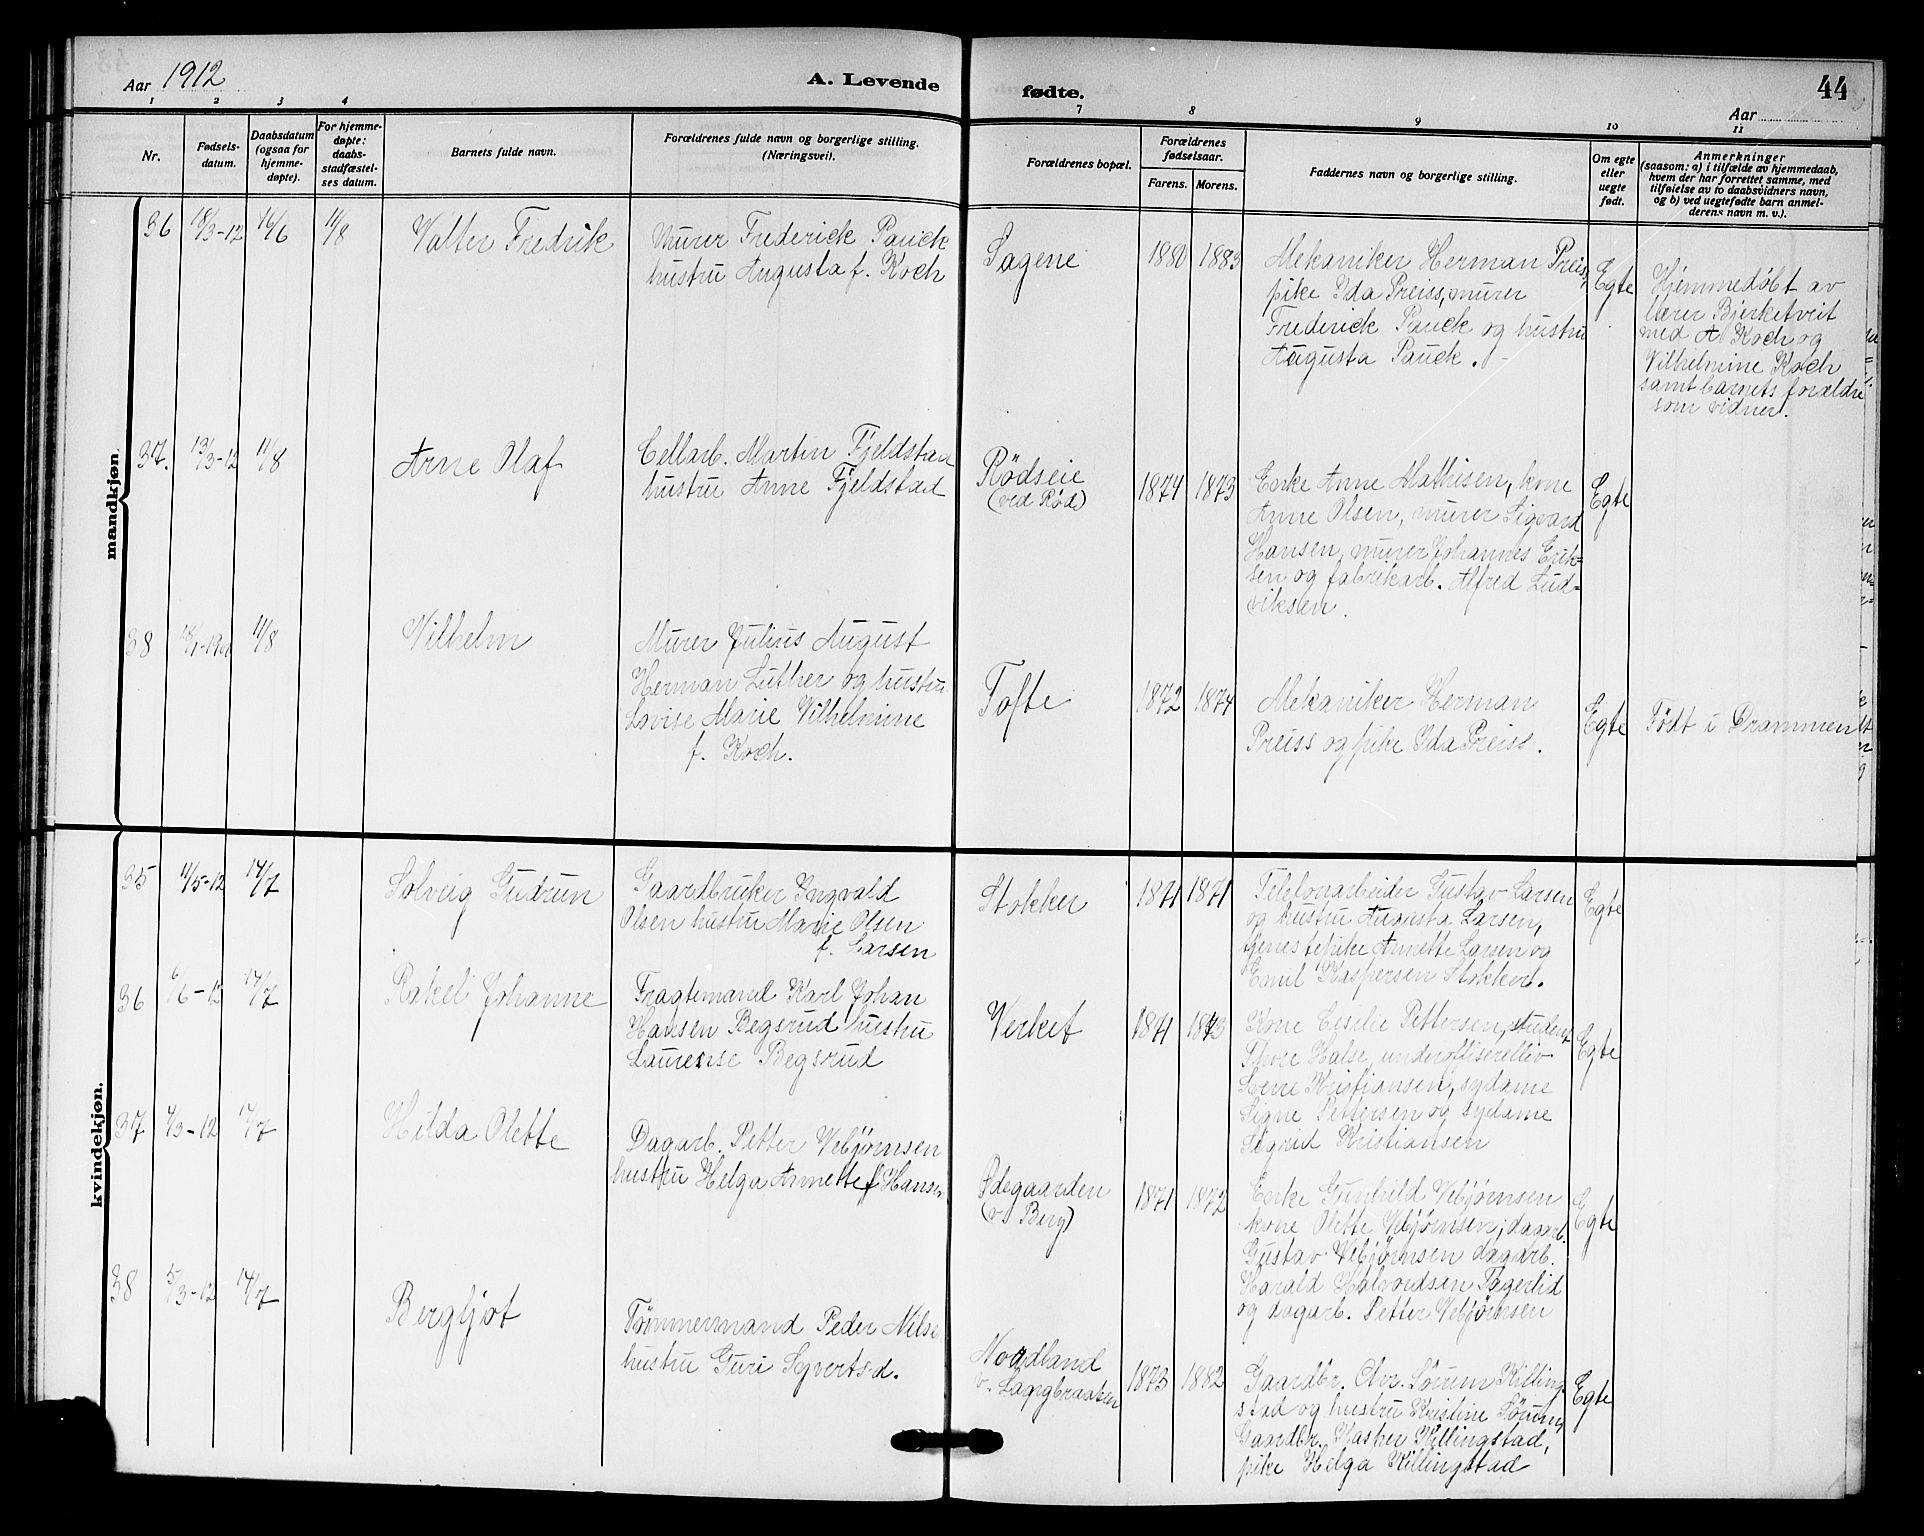 Aar 1912
A. Levende
fødte.
44
Aar
1 2 3 4 7 8 9 10 11
Nr.
Fødsels-
datum.
Daabsdatum
(ogsaa for
hjemme-
døpte).
For hjemme-
døpte:
daabs-
stadfæstel-
ses datum.
Barnets fulde navn.
Forældrenes fulde navn og borgerlige stilling.
(Næringsvei).
Forældrenes bopæl.
Forældrenes
fødselsaar.
Farens. Morens.
Faddernes navn og borgerlige stilling.
Om egte
eller
uegte
født.
Anmerkninger
(saasom: a) i tilfælde av hjemmedaab,
hvem der har forrettet samme, med
tilføielse av to daabsvidners navn,
og b) ved uegtefødte barn anmel-
derens navn m. v.).
mandkjøn
36 18/3-12 16/6 11/8
Valter Fredrik
Murer Frederick Pauck
hustru Augusta f. Koch
Sagene
1880 1883
Mekaniker Herman Preiss,
pike Ida Preiss, murer
Frederick Pauck og hustru
Augusta Pauck.
Egte
Hjemmedøbt av
lærer Bjerketveit
med A Koch og
Vilhelmine Koch
samt barnets forældre
som vidner.
37. 13/3-12 11/8
Arne Olaf
Cellarb. Martin Fjeldstad
hustru Anne Fjeldstad
Rödseie
(ved Rød)
1874 1873
Enke Anne Mathisen, kone
Anne Olsen, murer Sigvard
Hansen, murer Johannes Erik=
sen og fabrikarb. Alfred Lud=
viksen.
Egte
38 11/8
Vilhelm
Murer Julius August
Herman Luther og hustru
Lovise Marie Vilhelmine
f. Koch.
Tofte
1872 1874
Mekaniker Herman
Preiss og pike Ida Preiss.
Egte
Født i Drammen
kvindekjøn.
35 11/5-12 14/7
Solveig Gudrun
Gaardbruker Ingvald
Olsen hustru Marie Olsen
f. Larsen
Stokker
1871 1871
Telefonarbeider Gustav Larsen
og hustru Augusta Larsen,
tjenestepike Annette Larsen og
Emil Kaspersen Stokker.
Egte
36 6/6-12 14/7
Rakel Johanne
Fragtemand Karl Johan
Hansen Begsrud hustru
Laurense Begsrud
Verket
1871 1873
Kone Cecilie Pettersen, student
Thore Halse, underoffiserellev
Kristiansen, sydame
Signe Pettersen og sydame
Sigrid Kristiansen
Egte
37 4/3-12 14/7
Hilda Olette
Dagarb. Petter Vebjørnsen
hustru Helga Annette f Hansen
Ødegaarden
(v. Berg)
1871 1872
Enke Gunhild Vebjørnsen
kone Olette Vebjørnsen, dagarb.
Gustav Vebjørnsen dagarb.
Harald Halvordsen Fagerlid
og dagarb. Petter Vebjørnsen
Egte
38 5/3-12 14/7
Bergljot
Tømmermand Peder Nilsen
hustru Guri Syverts-d.
Nordland
v.
1873 1882
Gaardbr. Chr. Sørum Killing-
stad og hustru Kristine Sørum,
Gaardbr. Kasper Killingstad,
pike Helga Killingstad
Egte